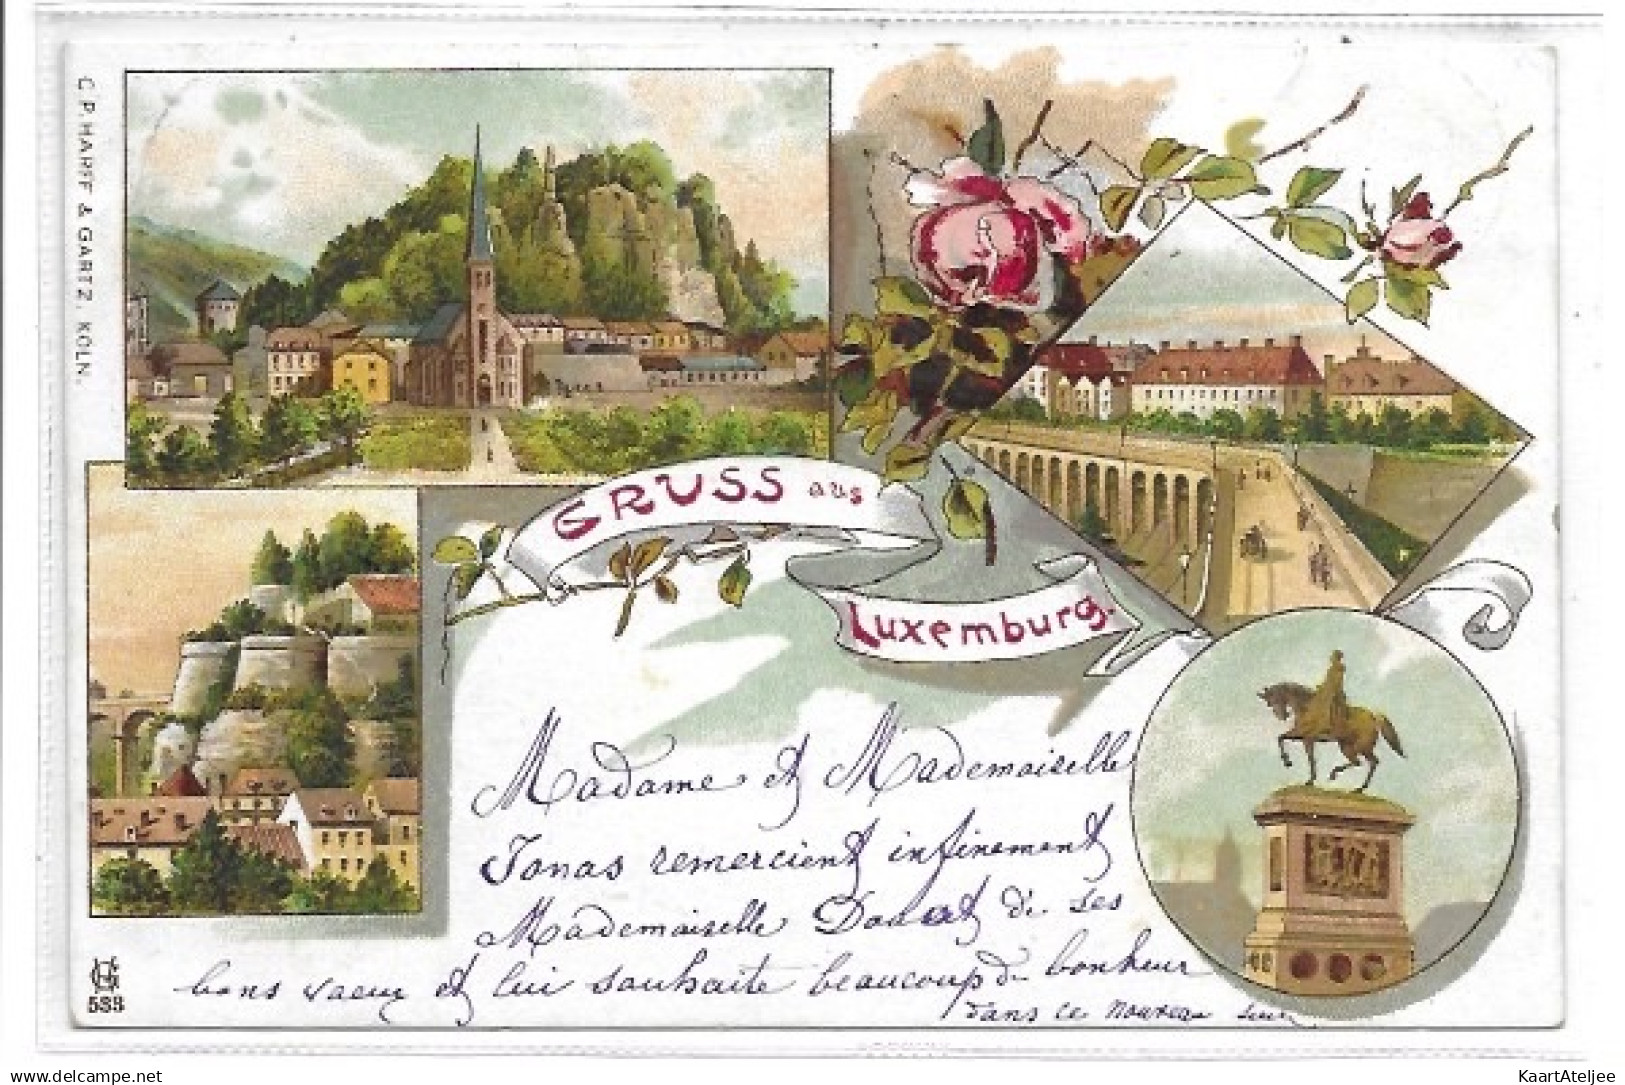 C. P. HARFF & GARTZ, KÖLN.
GRUSS aus
Luxemburg.
Madame et Mademoiselle
Jonas remercient infiniment
Mademoiselle Donat de ses
bons vaeux et lui souhaite beaucoup de bonheur
dans ce nouveau
HG
533
delcampe.net
KaartAteljee